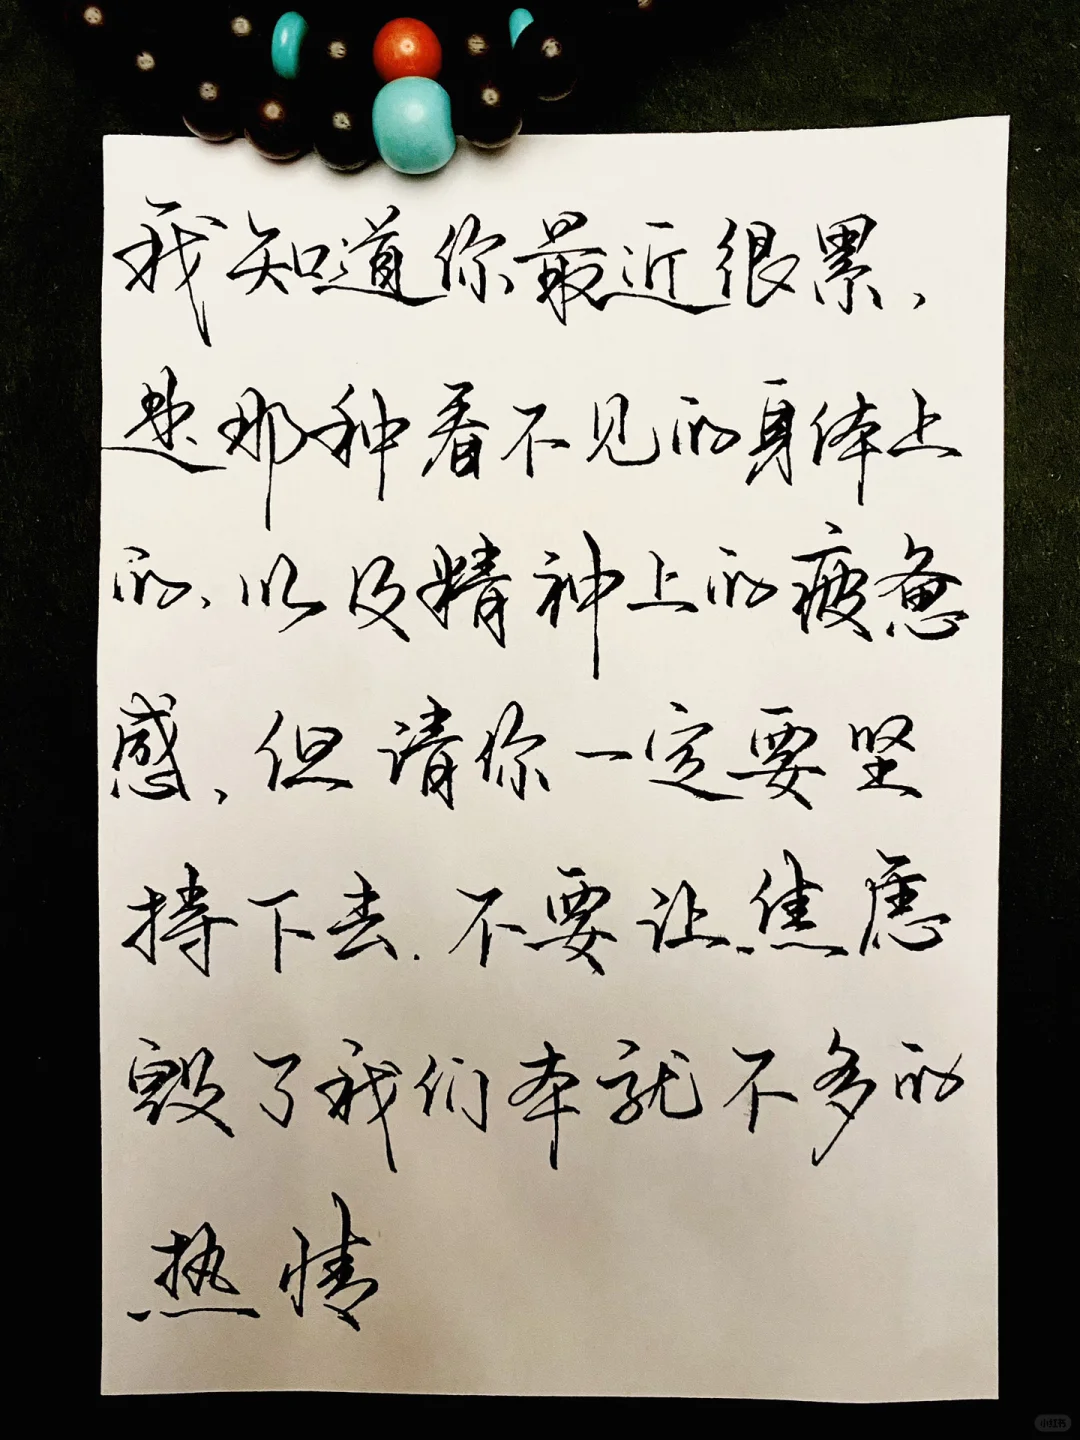 我知道你最近很累，
是那种看不见的身体上
的、以及精神上的疲惫
感，但请你一定要坚
持下去.不要让焦虑
毁了我们本就不多的
热情
小红书